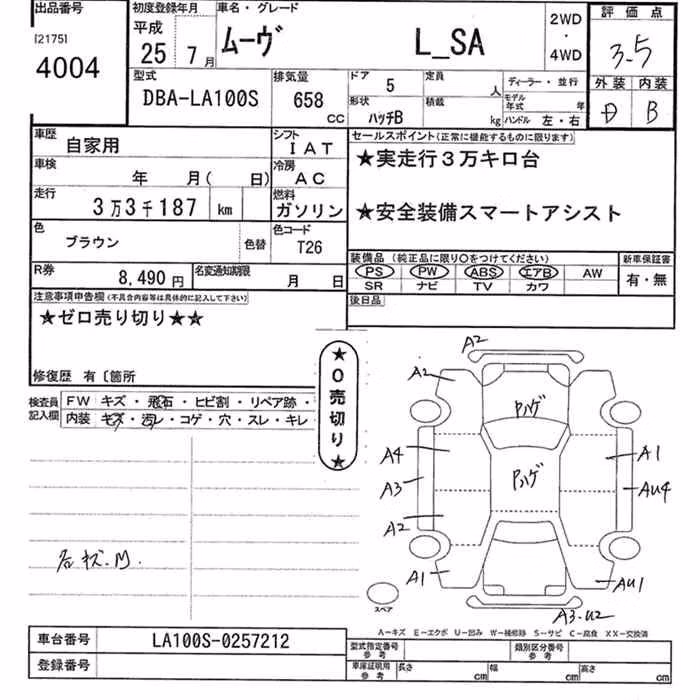 出品番号 初度登録年月 車名・グレード 2WD・4WD 評価点
[2175] 平成
4004 25年 7月 ムーヴ L_SA 3.5
型式 排気量 ドア 5 定員 人 ディーラー・並行 外装 内装
DBA-LA100S 658 CC 形状 ハッチB 積載 kg モデル年式 年 ハンドル 左・右 D B
車歴 自家用 シフト IAT セールスポイント(正常に機能するものに限ります)
車検 年 月( 日) 冷房 AC ★実走行3万キロ台
走行 3万3千187 km 燃料 ガソリン ★安全装備スマートアシスト
色 ブラウン 色替 色コード T26
装備品 (純正品に限り○をつけてください) 新車保証書
PS PW ABS エアB AW 有・無
SR ナビ TV カワ
R券 8,490円 名変通知期限 月 日
後日品
注意事項申告欄(不具合内容等は具体的に記入して下さい)
★ゼロ売り切り★★
修復歴 有〔箇所
★0売切り★
検査員記入欄 FW キズ・飛石・ヒビ割・リペア跡・
内装 キズ・汚レ・コゲ・穴・スレ・キレ
A2
A2
ハゲ
A4 A1
ハゲ
A3 AU4
A2
A1 AU1
A3-U2
スペア
A-キズ E-エクボ U-凹み W-補修跡 S-サビ C-腐食 XX-交換済
車台番号 LA100S-0257212 型式指定番号 参考 類別区分番号 参考
登録番号 車庫証明用 参考 長さ cm 幅 cm 高さ cm